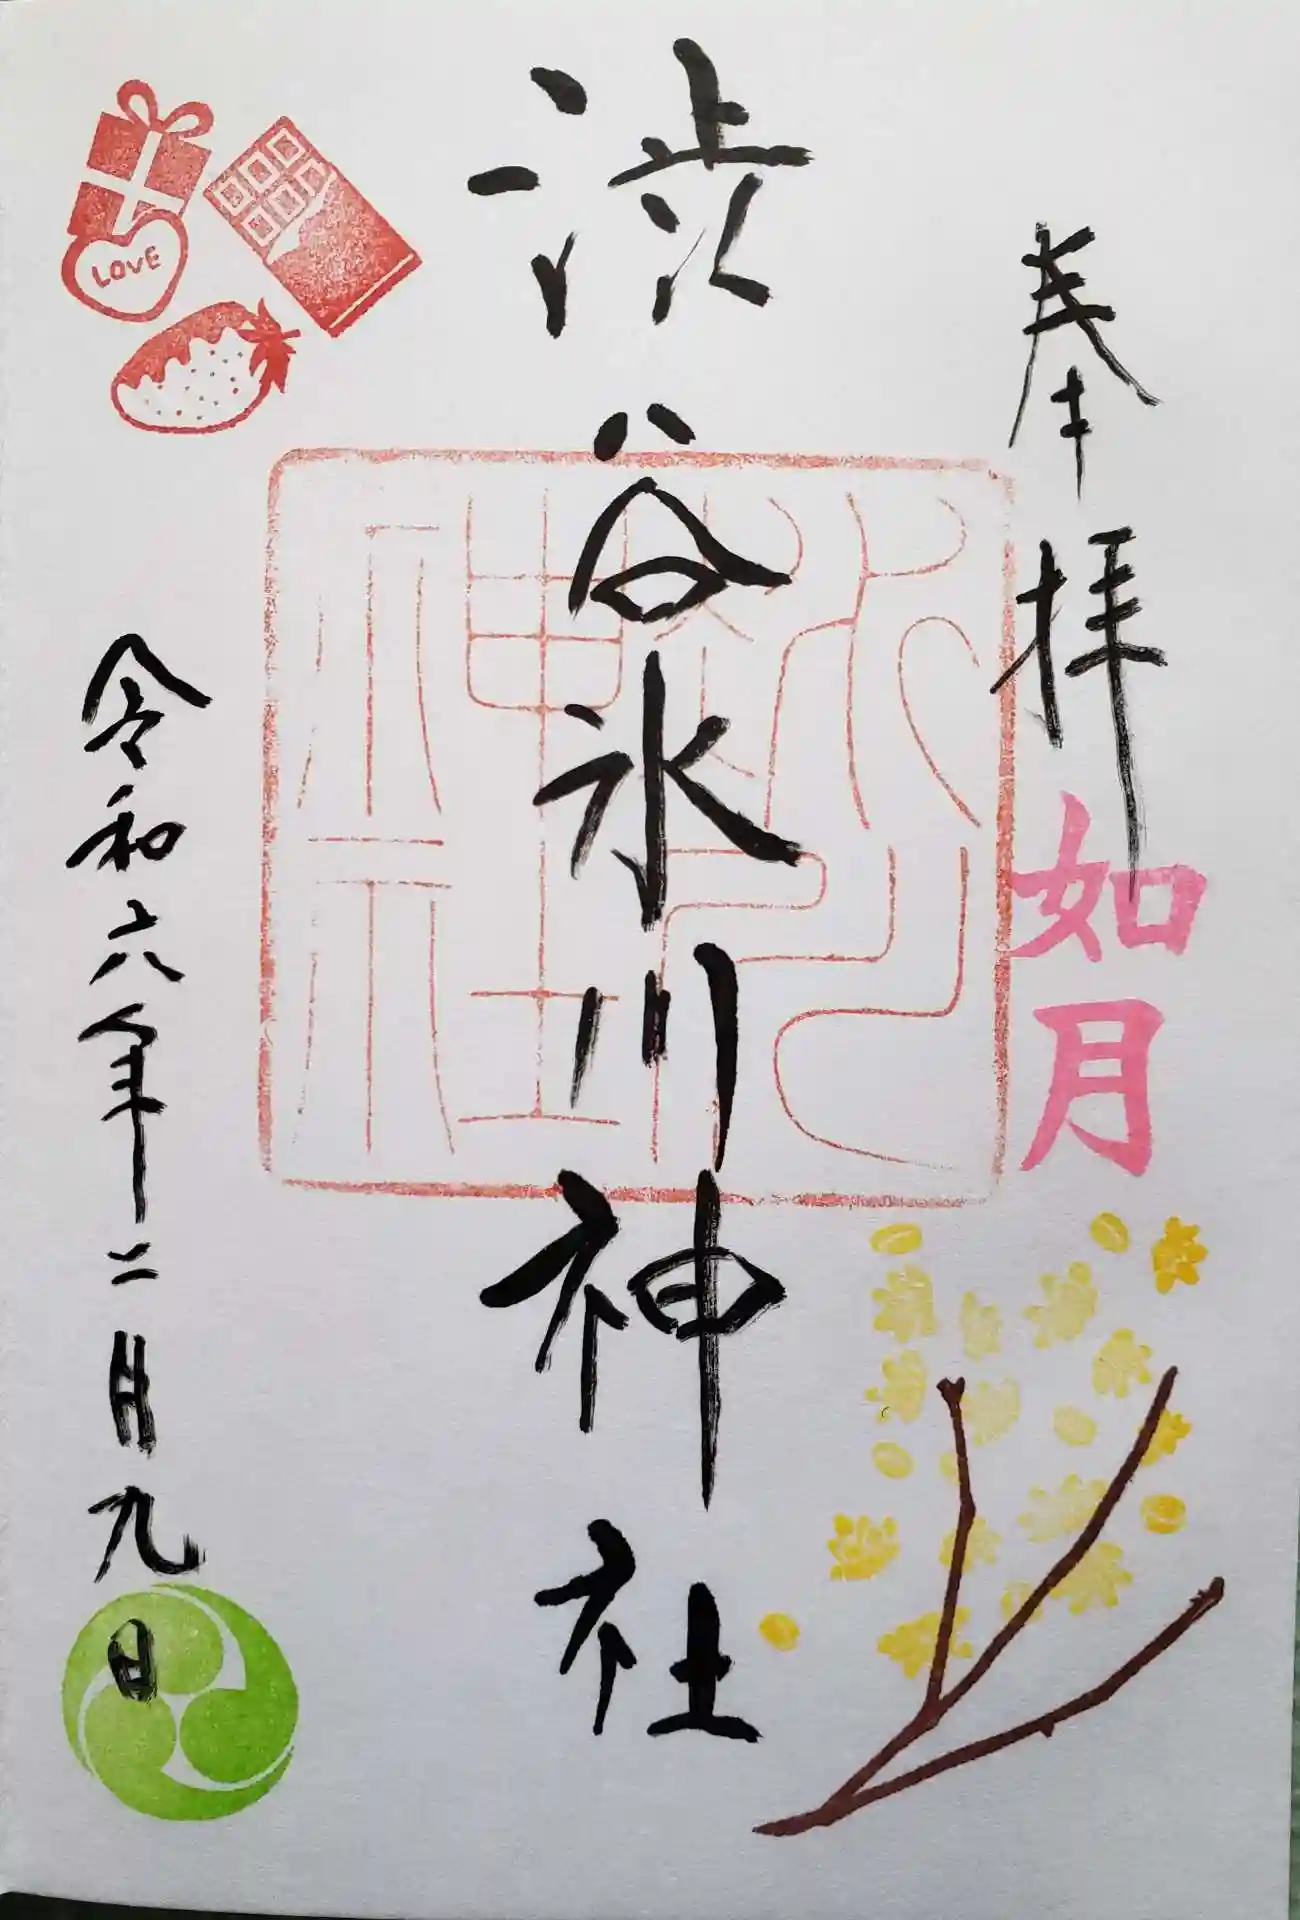 奉拝
如月
渋谷氷川神社
令和六年二月九日
LOVE